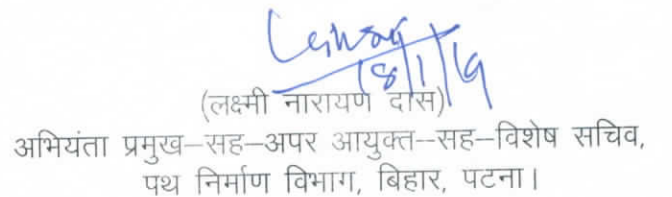 18/1/19
(लक्ष्मी नारायण दास)
अभियंता प्रमुख–सह–अपर आयुक्त--सह–विशेष सचिव,
पथ निर्माण विभाग, बिहार, पटना।